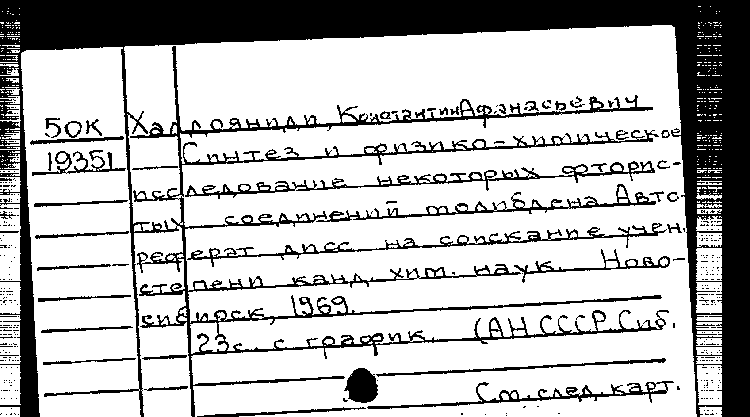 50К Халдояниди, Константин Афанасьевич
19351 Синтез и физико-химическое
исследование некоторых фторис-
тых соединений молибдена. Авто-
реферат дисс на соискание учен.
степени канд. хим. наук. Ново-
сибирск, 1969.
23с. с график. (АН СССР. Сиб.
См. след. карт.